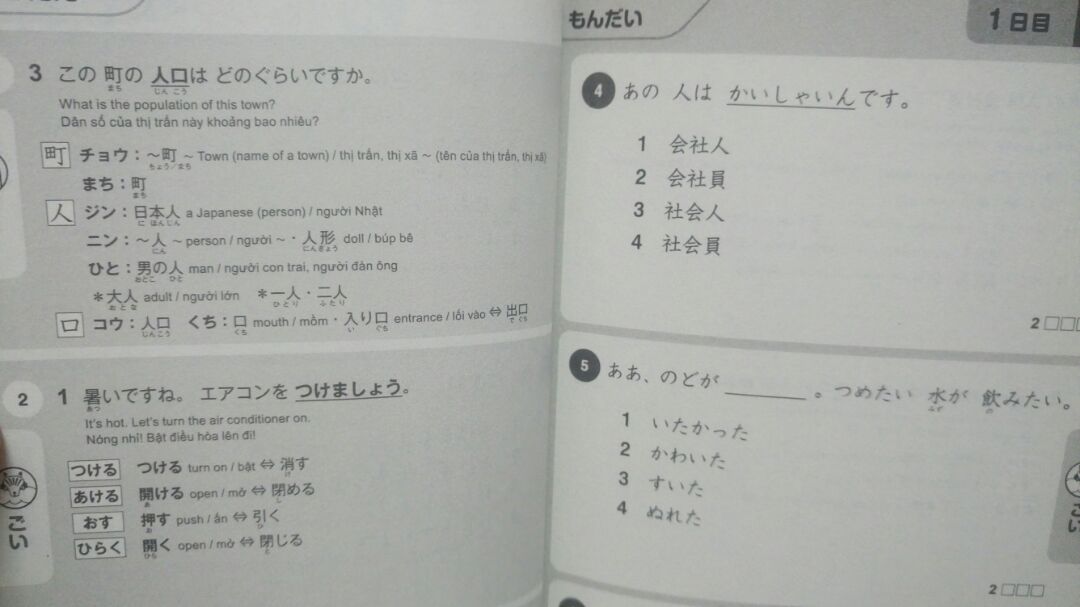 3 この 町の 人口は どのぐらいですか。
まち じんこう
What is the population of this town?
Dân số của thị trấn này khoảng bao nhiêu?
町 チョウ：～町 ~ Town (name of a town) / thị trấn, thị xã ~ (tên của thị trấn, thị xã)
ちょう／まち
まち：町
まち
人 ジン：日本人 a Japanese (person) / người Nhật
に ほんじん
ニン：～人 ~ person / người ~ ・人形 doll / búp bê
にん にんぎょう
ひと：男の人 man / người con trai, người đàn ông
おとこ ひと
＊大人 adult / người lớn ＊一人・二人
おとな ひとり ふたり
口 コウ：人口 くち：口 mouth / mồm・入り口 entrance / lối vào ⇔ 出口
じんこう くち い ぐち で ぐち
2 1 暑いですね。 エアコンを つけましょう。
あつ
It's hot. Let's turn the air conditioner on.
Nóng nhỉ! Bật điều hòa lên đi!
つける つける turn on / bật ⇔ 消す
け
あける 開ける open / mở ⇔ 閉める
あ し
おす 押す push / ấn ⇔ 引く
お ひ
ひらく 開く open / mở ⇔ 閉じる
ひら と
ごい
もんだい
1日目
4 あの 人は かいしゃいんです。
1 会社人
2 会社員
3 社会人
4 社会員
2 □□□
5 ああ、のどが ______。つめたい 水が 飲みたい。
みず の
1 いたかった
2 かわいた
3 すいた
4 ぬれた
ごい
2 □□□